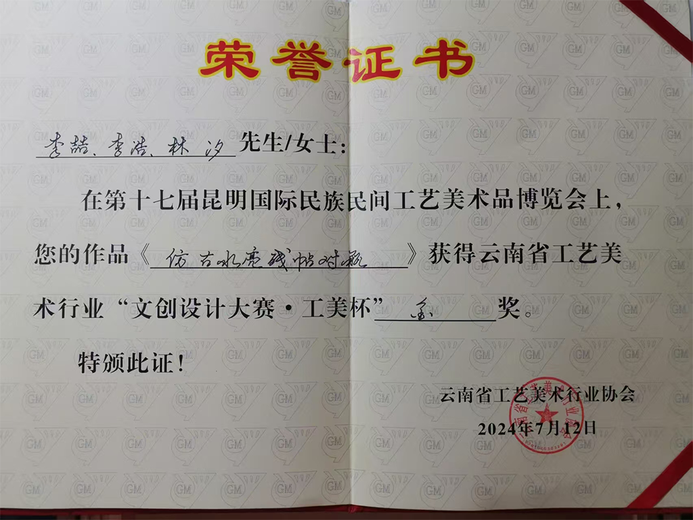 荣誉证书
李喆、李浩、林汐 先生/女士：
在第十七届昆明国际民族民间工艺美术品博览会上，
您的作品《仿古水亮残帖对瓶》获得云南省工艺美
术行业“文创设计大赛·工美杯” 金 奖。
特颁此证！
云南省工艺美术行业协会
2024年7月12日